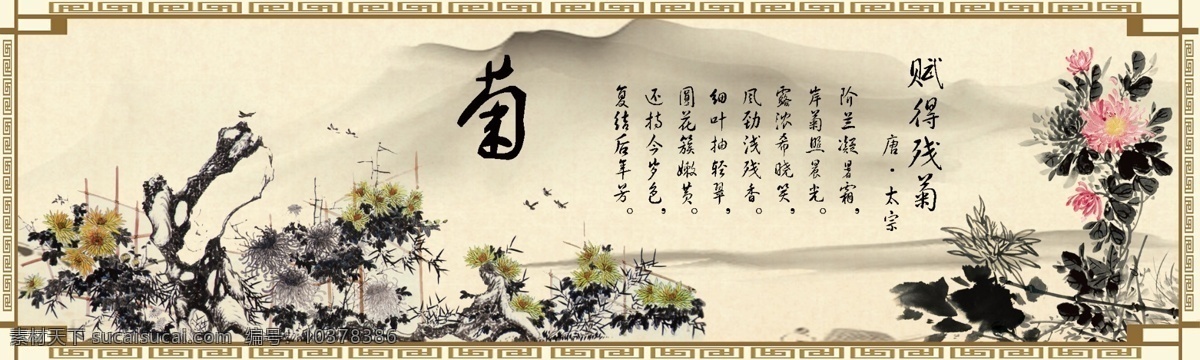 赋得残菊
唐·太宗
阶兰凝暑霜，
岸菊照晨光。
露浓希晓笑，
风劲浅残香。
细叶抽轻翠，
圆花簇嫩黄。
还持今岁色，
复结后年芳。
菊
素材天下 sucaisucai.com 编号：10378386